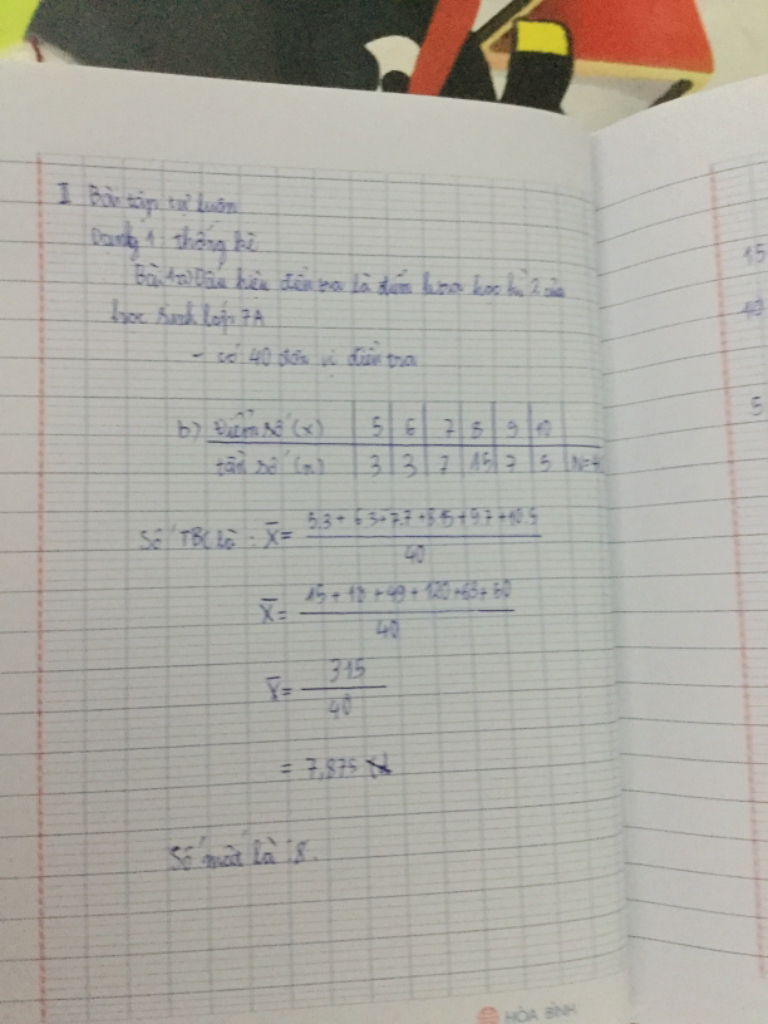 II Bài tập tự luận
Dạng 1: thống kê
Bài 1a) Dấu hiệu điều tra là điểm học kì 2 của
học sinh lớp 7A
- có 40 đơn vị điều tra
b) Điểm số (x) | 5 | 6 | 7 | 8 | 9 | 10
tần số (n) | 3 | 3 | 7 | 15 | 7 | 5 | N=4
Số TBC là: X̄ = 5.3 + 6.3+7.7+8.15+9.7+10.5 / 40
X̄ = 15+18+49+120+63+50 / 40
X̄ = 315 / 40
= 7,875
Số mốt là: 8.
HÒA BÌNH
15
40
5